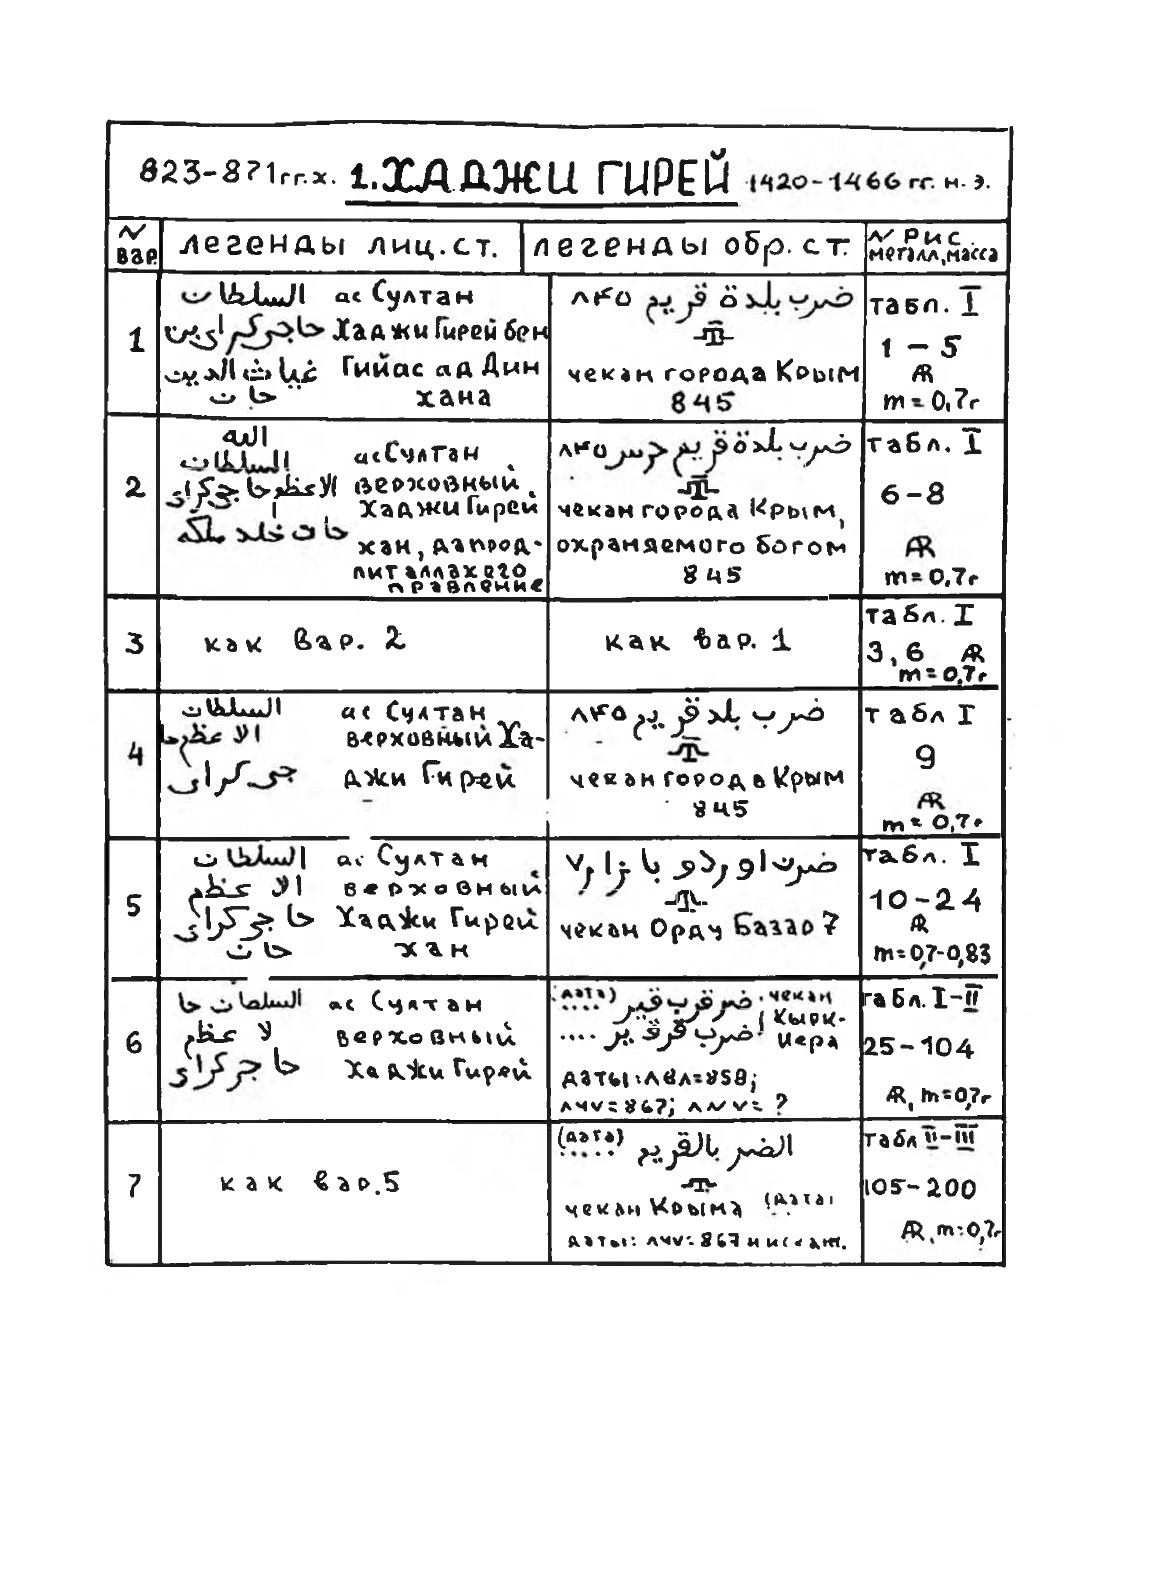 823-871гг.х. 1. ХАДЖИ ГИРЕЙ 1420-1466 гг. н. э.
N вар. легенды лиц. ст. легенды обр. ст. N рис. металл, масса
1
السلطان ас Султан
حاجى كراى بن Хаджи Гирей бен
غياث الدين Гийас ад Дин
خان хана
ضرب بلدة قريم ٨٤٥
чекан города Крым
845
табл. I
1 – 5
AR
m = 0,7г
2
الله
السلطان ас Султан
الاعظم حاجى كراى верховный
Хаджи Гирей
خان خلد ملكه хан, да прод-
лит аллах его
правление
ضرب بلدة قريم ٨٤٥
чекан города Крым,
охраняемого богом
845
табл. I
6-8
AR
m=0,7г
3
как вар. 2
как вар. 1
табл. I
3,6 AR
m=0,7г
4
السلطان ас Султан
الاعظم حا верховный Ха-
جى كراى джи Гирей
ضرب بلد قريم ٨٤٥
чекан города Крым
845
табл I
9
AR
m= 0,7г
5
السلطان ас Султан
الا عظم верховный
حاجى كراى Хаджи Гирей
خان хан
ضرب اوردو بازار ٧
чекан Орду Базар 7
табл. I
10-24
AR
m=0,7-0,83
6
السلطان حا ас Султан
لا عظم верховный
حاجى كراى Хаджи Гирей
(дата) ..... чекан
.... Кырк-
иера
даты: ٨٥٨=858;
٨٦٧=867; ?
табл. I-II
25-104
AR, m=0,7г
7
как вар.5
(дата)
..... الضر بالقريم
чекан Крыма (дата)
даты: ٨٦٧=867 и искаж.
табл II-III
105-200
AR, m=0,7г